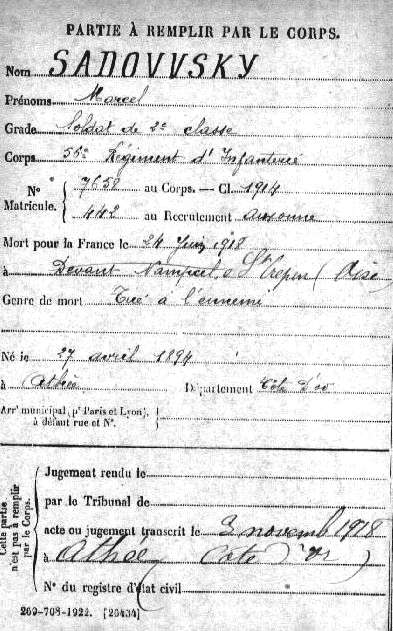 PARTIE À REMPLIR PAR LE CORPS.
Nom SADOVVSKY
Prénoms Marcel
Grade Soldat de 2e classe
Corps 56e Régiment d'Infanterie
N° 7652 au Corps. — Cl. 1914
Matricule. 442 au Recrutement Auxonne
Mort pour la France le 24 Juin 1918
à Devant St Crepin (Oise
Genre de mort Tué à l'ennemi
Né le 27 avril 1894
à Athée Département Côte d'or
Arrt municipal (pr Paris et Lyon),
à défaut rue et N°.
Cette partie
n'est pas à remplir
par le Corps.
Jugement rendu le
par le Tribunal de
acte ou jugement transcrit le 3 novemb 1918
à Athée (Cote d'or)
N° du registre d'état civil
269-708-1922. [26434]